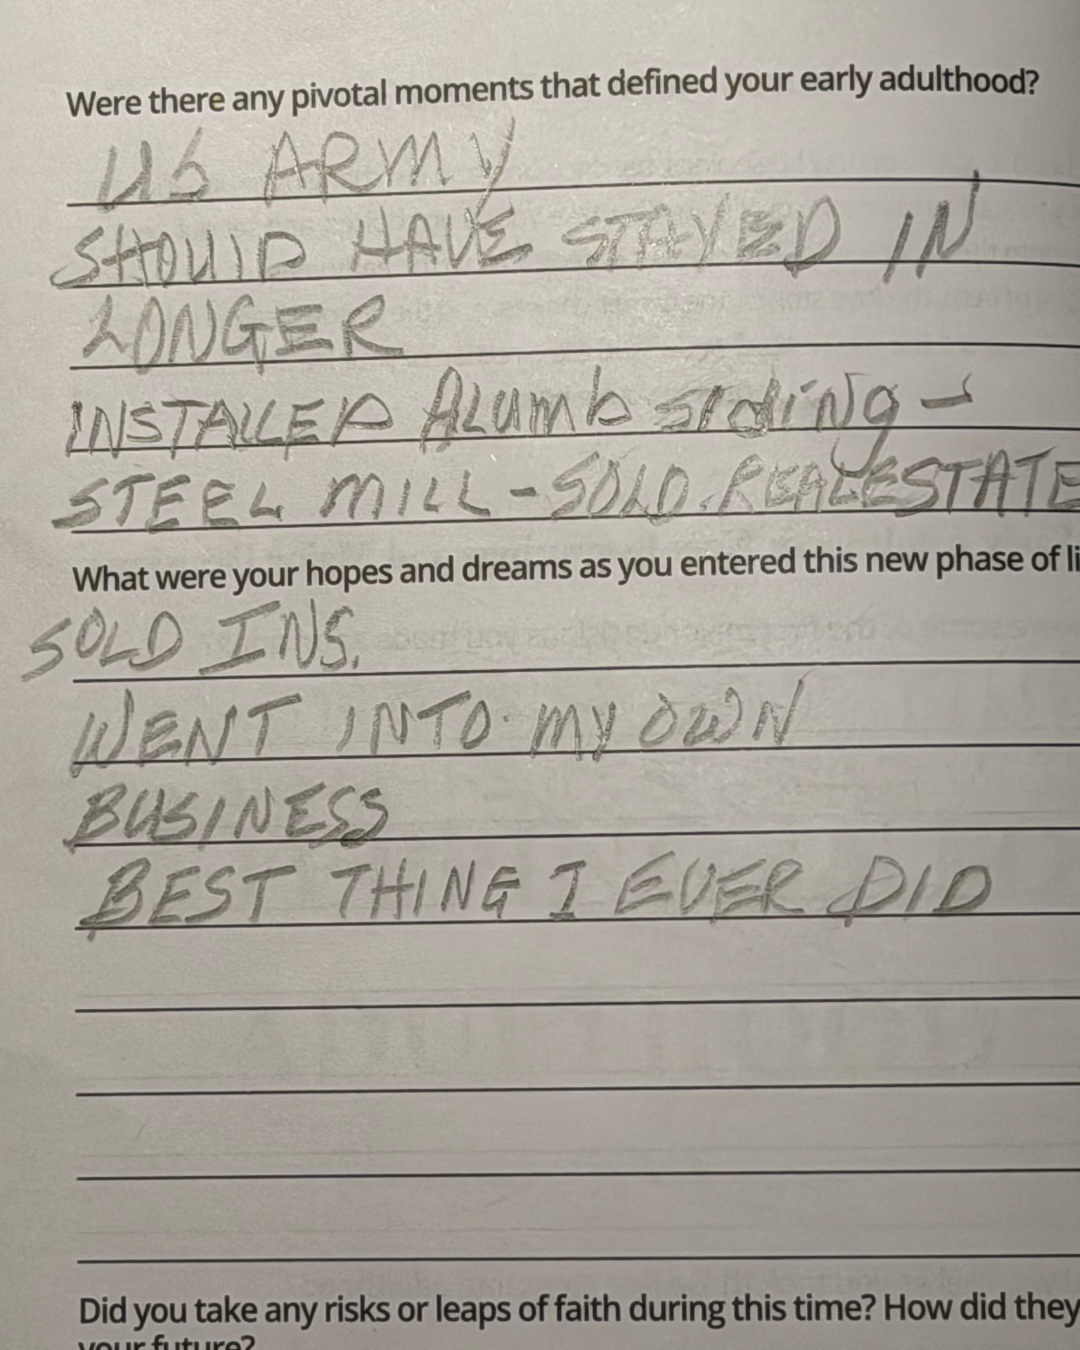 Were there any pivotal moments that defined your early adulthood?
US ARMY
SHOULD HAVE STAYED IN
LONGER
INSTALLED Alumb siding -
STEEL MILL - SOLD REAL ESTATE
What were your hopes and dreams as you entered this new phase of li
SOLD INS.
WENT INTO MY OWN
BUSINESS
BEST THING I EVER DID
Did you take any risks or leaps of faith during this time? How did they
your future?